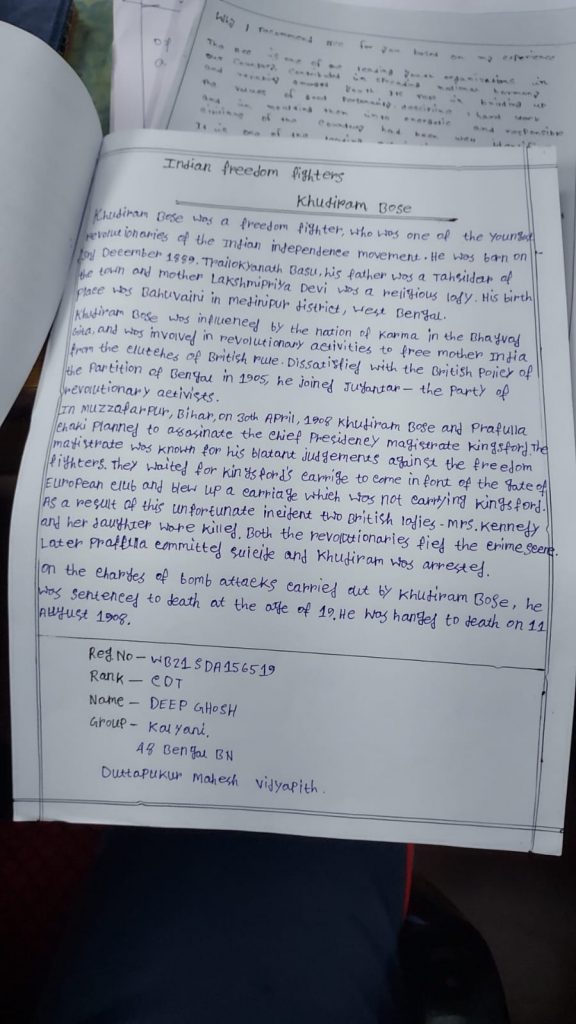 Why I recommend NCC for you based on my experience
The NCC is one of the leading youth organizations in
our Country
and
the values of good
and in moulding them into energetic and responsible
citizens of the Country had been
It is one of the
of
a
Indian freedom fighters
Khudiram Bose
Khudiram Bose was a freedom fighter, who was one of the youngest
revolutionaries of the Indian independence movement. He was barn on
3rd December 1889. Trailokyanath Basu, his father was a Tahsildar of
the town and mother Lakshmipriya Devi was a religious lady. His birth
place was Bahuvaini in medinipur district, west Bengal.
Khudiram Bose was influenced by the nation of Karma in the Bhagvad
Gita, and was involved in revolutionary activities to free mother India
from the clutches of British rule. Dissatisfied with the British Policy of
the Partition of Bengal in 1905, he joined Jugantar – the Party of
revolutionary activists.
In Muzzafarpur, Bihar, on 30th April, 1908 Khudiram Bose and Prafulla
Chaki Planned to assasinate the Chief Presidency magistrate Kingsford. The
magistrate was known for his blatant judgements against the freedom
fighters. They waited for Kingsford's carrige to come in font of the gate of
European club and blew up a carriage which was not carrying Kingsford.
As a result of this unfortunate incident two British ladies - Mrs. Kennedy
and her daughter ware killed. Both the revolutionaries fled the crime scene.
Later Praffulla committed suicide and Khudiram was arrested.
On the charges of bomb attacks carried out by Khudiram Bose, he
was sentenced to death at the age of 19. He was hanged to death on 11
August 1908.
Reg No – WB21SDA156519
Rank – CDT
Name – DEEP GHOSH
Group – Kalyani.
48 Bengal BN
Duttapukur Mahesh Vidyapith.